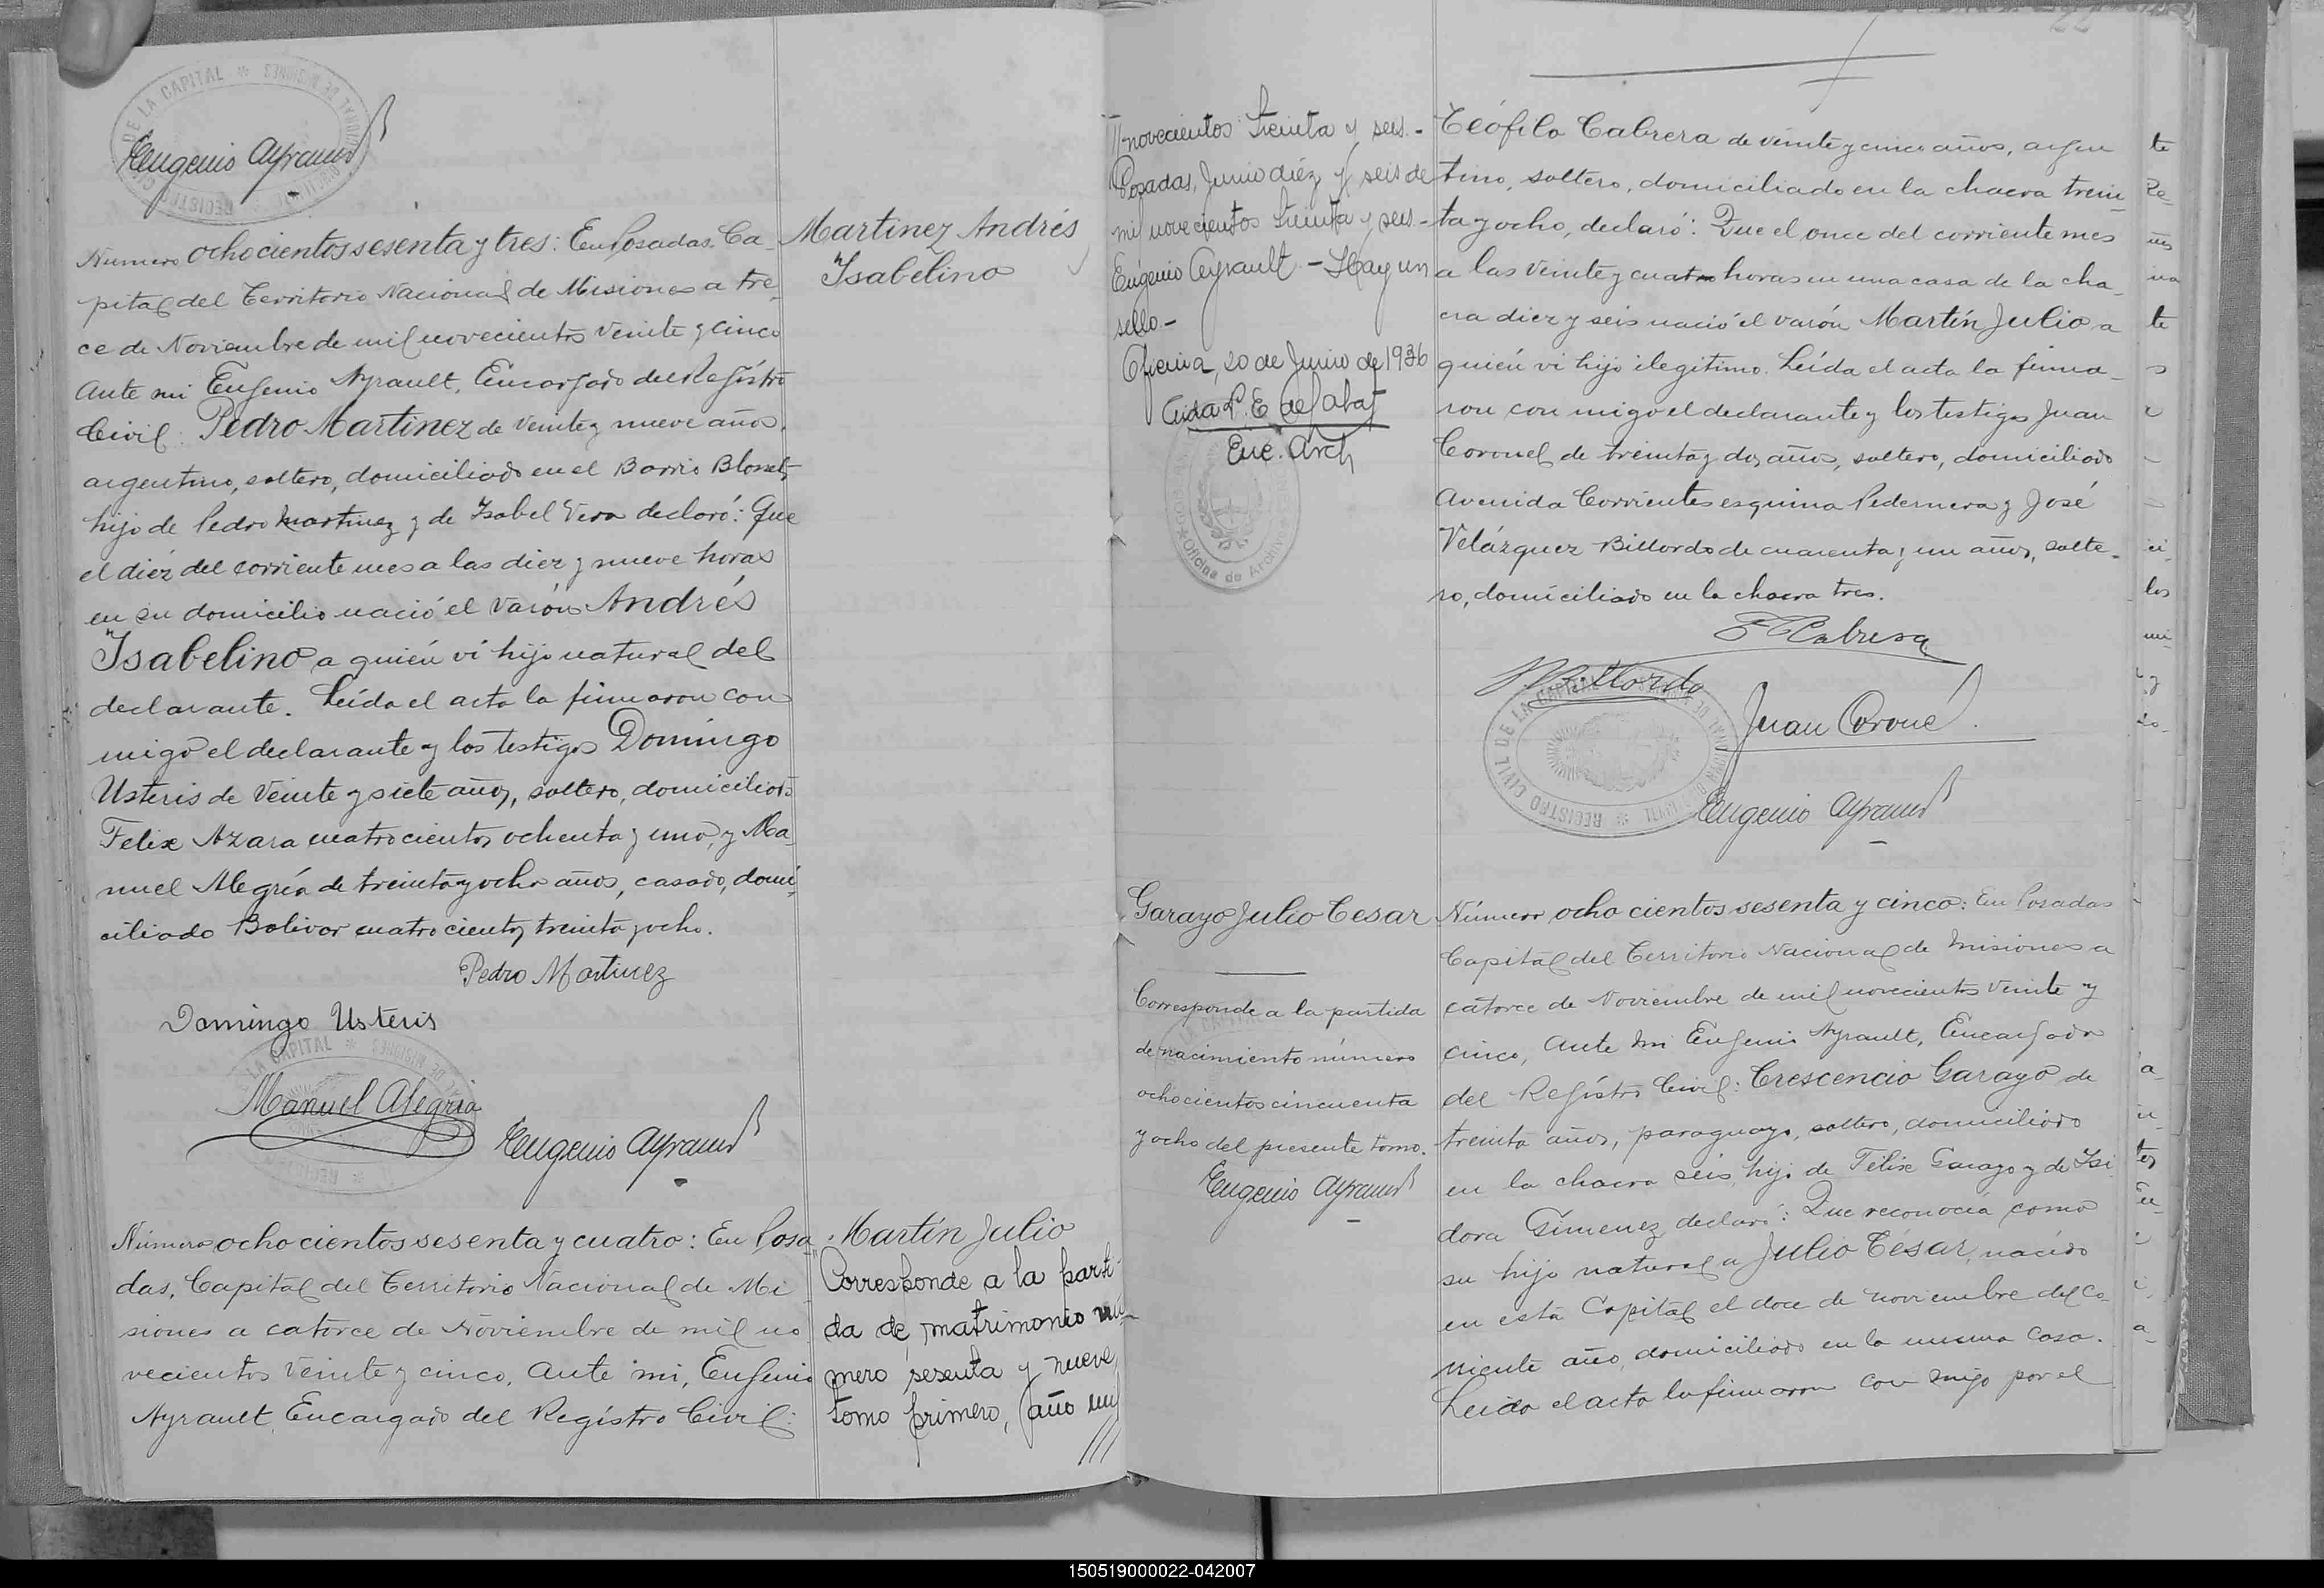 DE LA CAPITAL * MISIONES
Eugenio Ayrault
Número ochocientos sesenta y tres: En Posadas, Ca-
pital del Territorio Nacional de Misiones a tre-
ce de Noviembre de mil novecientos veinte y cinco
Ante mi Eugenio Ayrault, Encargado del Registro
Civil: Pedro Martinez de veinte y nueve años,
argentino, soltero, domiciliado en el Barrio Blosset,
hijo de Pedro Martinez y de Isabel Vera declaró: Que
el diéz del corriente mes a las diez y nueve horas
en su domicilio nació el varón Andrés
Isabelino a quién ví hijo natural del
declarante. Leída el acta la firmaron con
migo el declarante y los testigos Domingo
Usteris de veinte y siete años, soltero, domiciliado
Felix Azara cuatrocientos ochenta y uno, y Ma-
nuel Alegría de treinta y ocho años, casado, domi-
ciliado Bolivar cuatrocientos treinta y ocho.
Pedro Martinez
Domingo Usteris
Manuel Alegria
Eugenio Ayrault
Martinez Andrés
Isabelino
Número ochocientos sesenta y cuatro: En Posa
das, Capital del Territorio Nacional de Mi
siones a catorce de Noviembre de mil no
vecientos veinte y cinco, ante mi, Eugenio
Ayrault, Encargado del Registro Civil:
Martín Julio
Corresponde a la parti-
da de matrimonio nú-
mero sesenta y nueve,
tomo primero, año mil
///
// novecientos treinta y seis.-
Posadas, Junio diéz y seis de
mil novecientos treinta y seis.-
Eugenio Ayrault - Hay un
sello.-
Oficina, 20 de Junio de 1936
Enc. Arch
Oficina de Archivo
Teófilo Cabrera de veinte y cinco años, argen
tino, soltero, domiciliado en la chacra trein-
ta y ocho, declaró: Que el once del corriente mes
a las veinte y cuatro horas en una casa de la cha-
cra diez y seis nació el varón Martín Julio a
quién ví hijo ilegitimo. Leída el acta la firma-
ron con migo el declarante y los testigos Juan
Coronel de treinta y dos años, soltero, domiciliado
Avenida Corrientes esquina Pedernera y José
Velázquez Billordo de cuarenta y un años, solte-
ro, domiciliado en la chacra tres.
Cabrera
Billordo
Juan Coronel
REGISTRO CIVIL DE LA CAPITAL
Eugenio Ayrault
Garayo Julio Cesar
Corresponde a la partida
de nacimiento número
ochocientos cincuenta
y ocho del presente tomo.
Eugenio Ayrault
Número ochocientos sesenta y cinco: En Posadas
Capital del Territorio Nacional de Misiones a
catorce de Noviembre de mil novecientos veinte y
cinco, ante mi Eugenio Ayrault, Encargado
del Registro Civil: Crescencio Garayo, de
treinta años, paraguayo, soltero, domiciliado
en la chacra seis, hijo de Félix Garayo y de Isi
dora Gimenez declaró: Que reconocía como
su hijo natural a Julio César, nacido
en esta Capital el doce de noviembre del co
rriente año, domiciliado en la misma casa.
Leída el acta la firmaron con migo por el
150519000022-042007